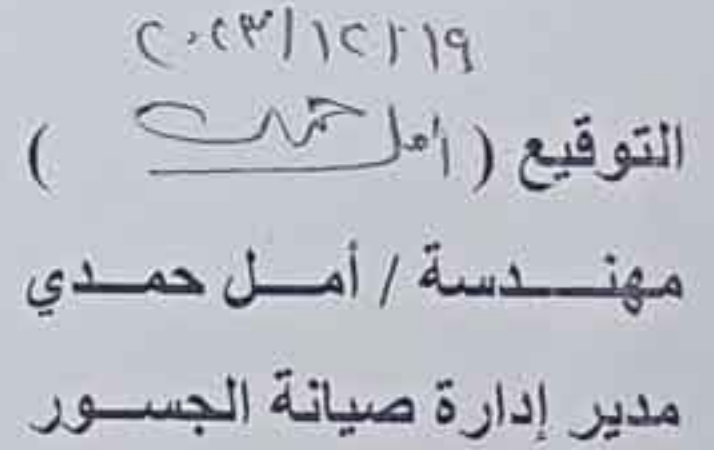 ٢٠٢٣/١٢/١٩
التوقيع ( أمل حمدي )
مهندسة / أمل حمدي
مدير إدارة صيانة الجسور